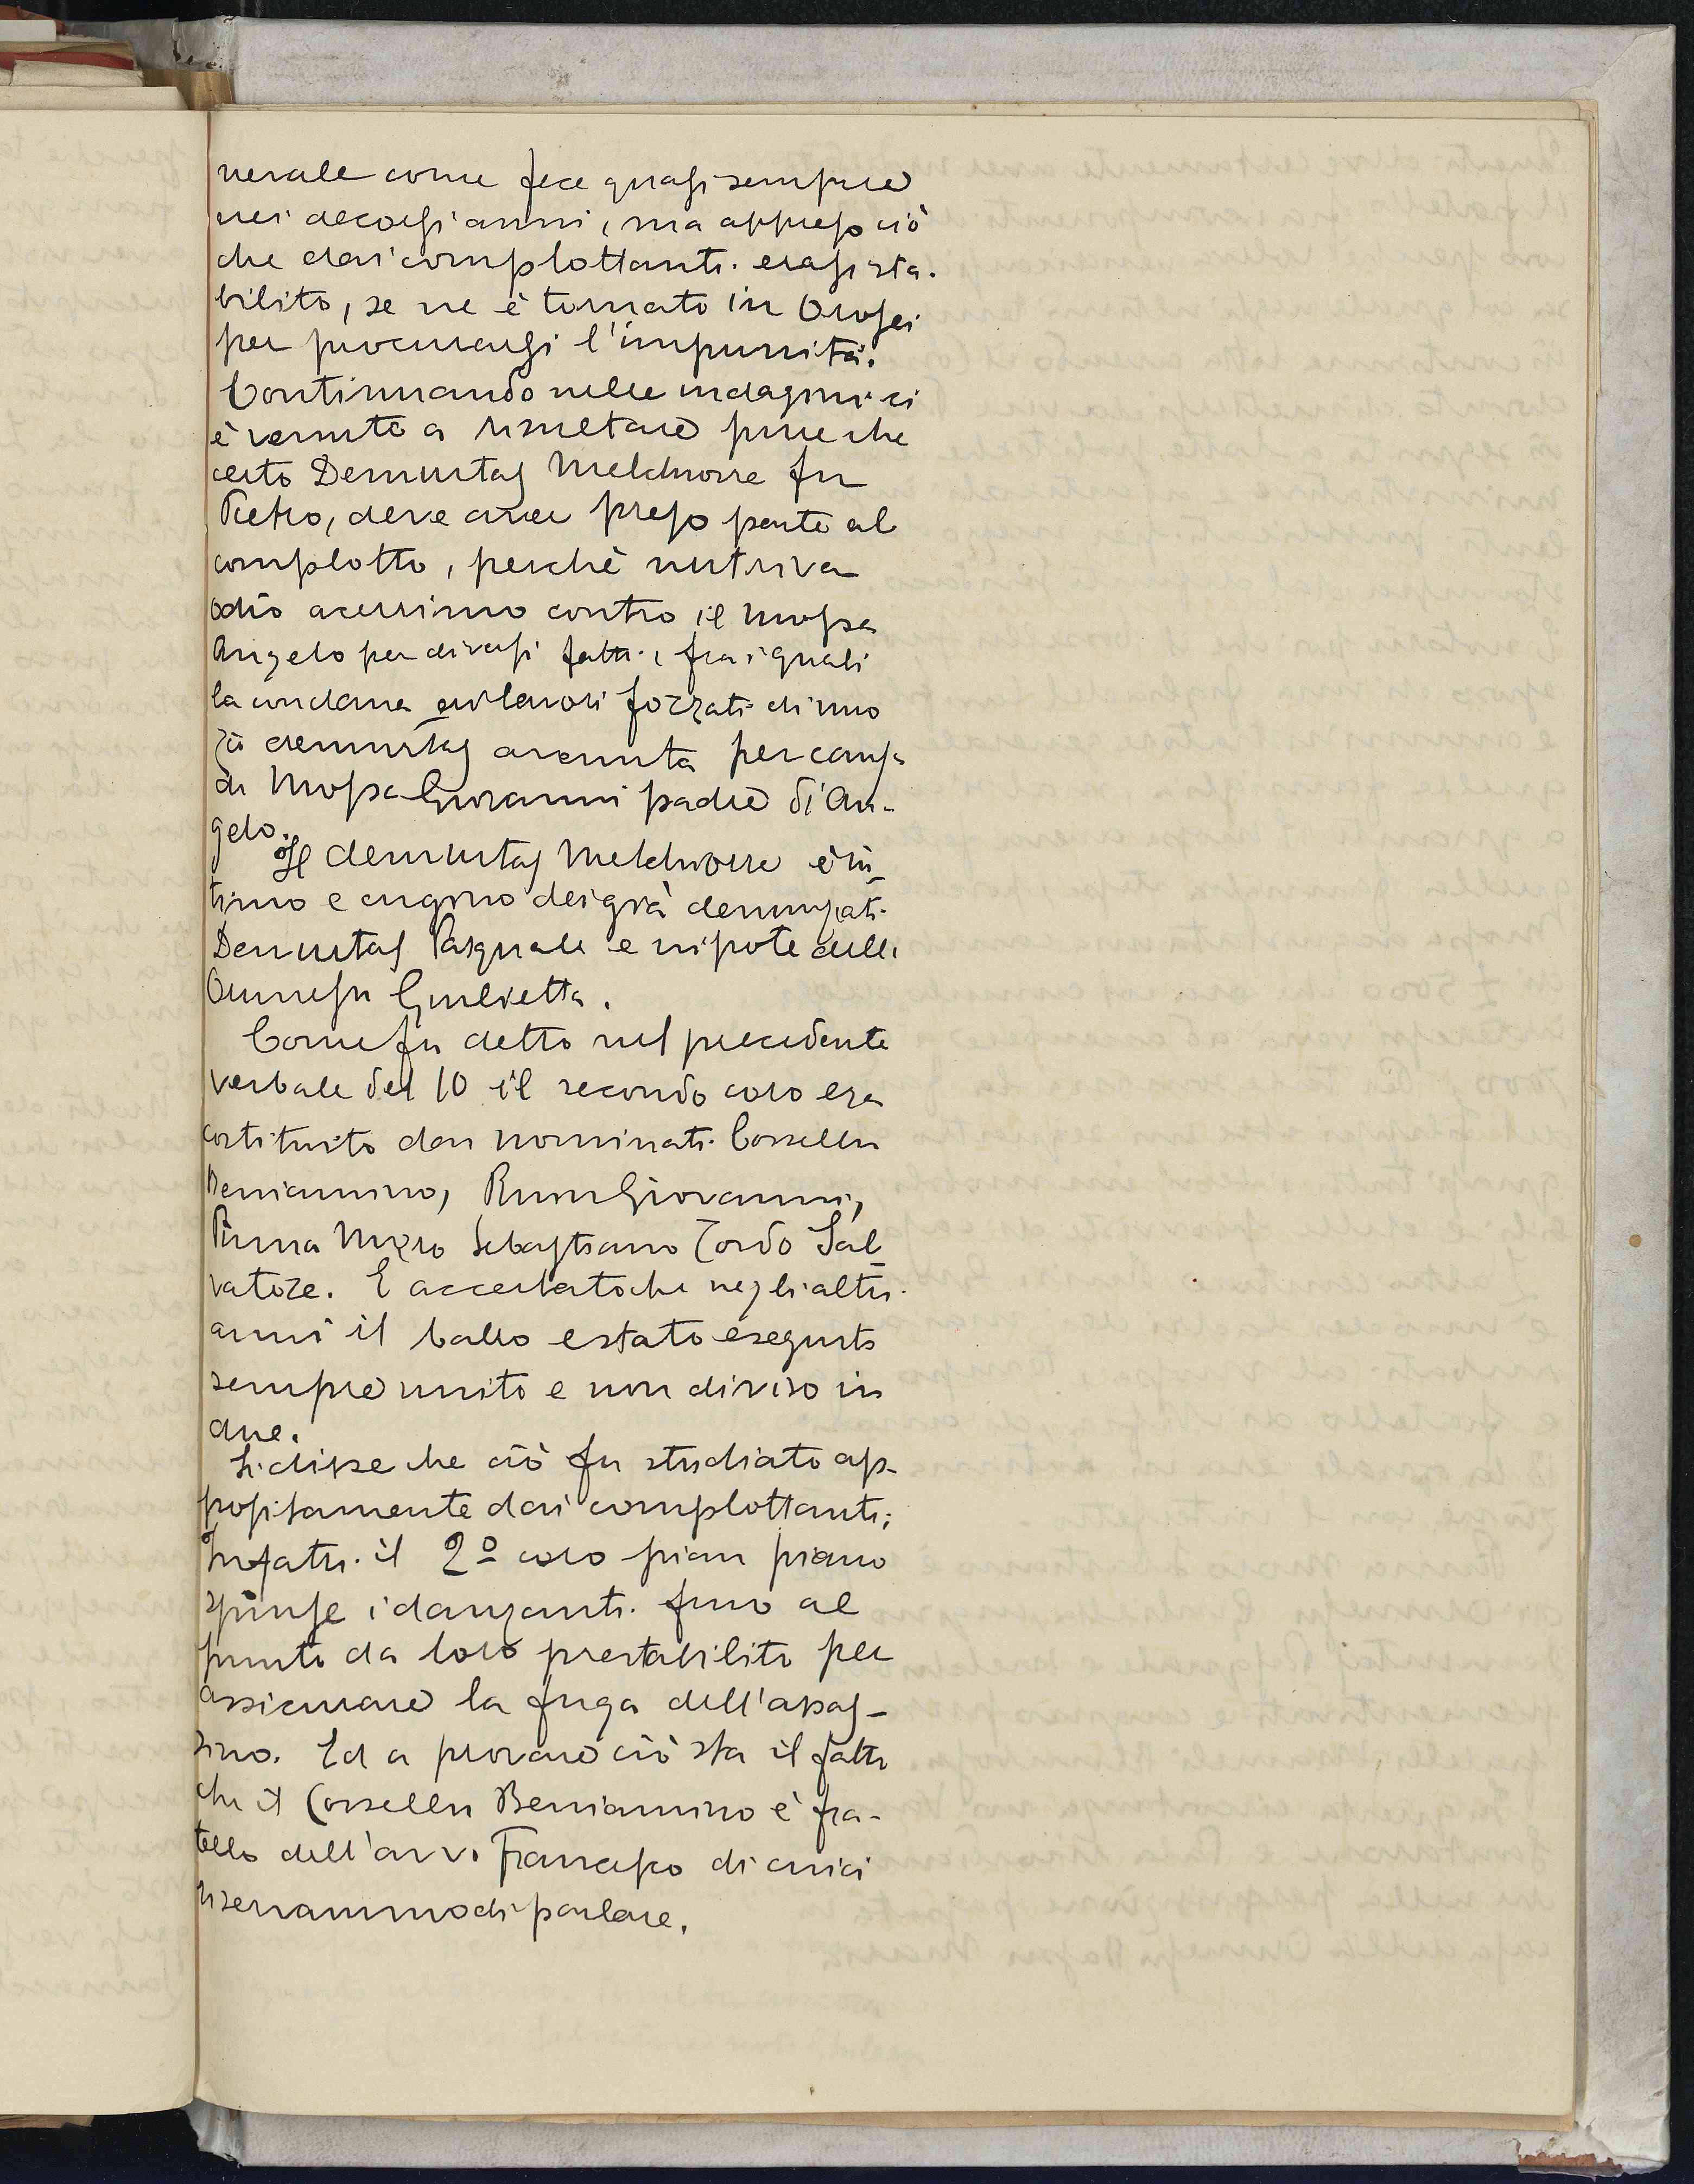 nerale come fece quasi sempre
nei decorsi anni, ma appreso ciò
che dai complottanti erasi sta-
bilito, se ne è tornato in Orosei
per procurarsi l'impunità.
Continuando nelle indagini ci
è venuto a risultare pure che
certo Demurtas Melchiorre fu
Pietro, deve aver preso parte al
complotto, perchè nutriva
odio acerrimo contro il Mossa
Angelo per diversi fatti, fra i quali
la condana ai lavori forzati di uno
zio demurtas avenuta per causa
di Mossa Giovanni padre di An-
gelo.
Il demurtas Melchiorre è in-
timo e cugino dei già denunziati
Demurtas Pasquale e nipote della
Ounnesu Giulietta.
Come fu detto nel precedente
verbale del 10 il secondo coro era
costituito dai nominati Cossellu
Beniamino, Ruiu Giovanni,
Pinna Moro Sebastiano Zordo Sal-
vatore. È accertato che negli altri
anni il ballo e stato eseguito
sempre unito e non diviso in
due.
Si disse che ciò fu studiato ap-
positamente dai complottanti;
Infatti il 2º coro pian piano
spinse i danzanti fino al
punto da loro prestabilito per
assicurare la fuga dell'assas-
sino. Ed a provare ciò sta il fatto
che il Cossellu Beniamino è fra-
tello dell'avv. Francesco di cui ci
riserrammo di parlare.